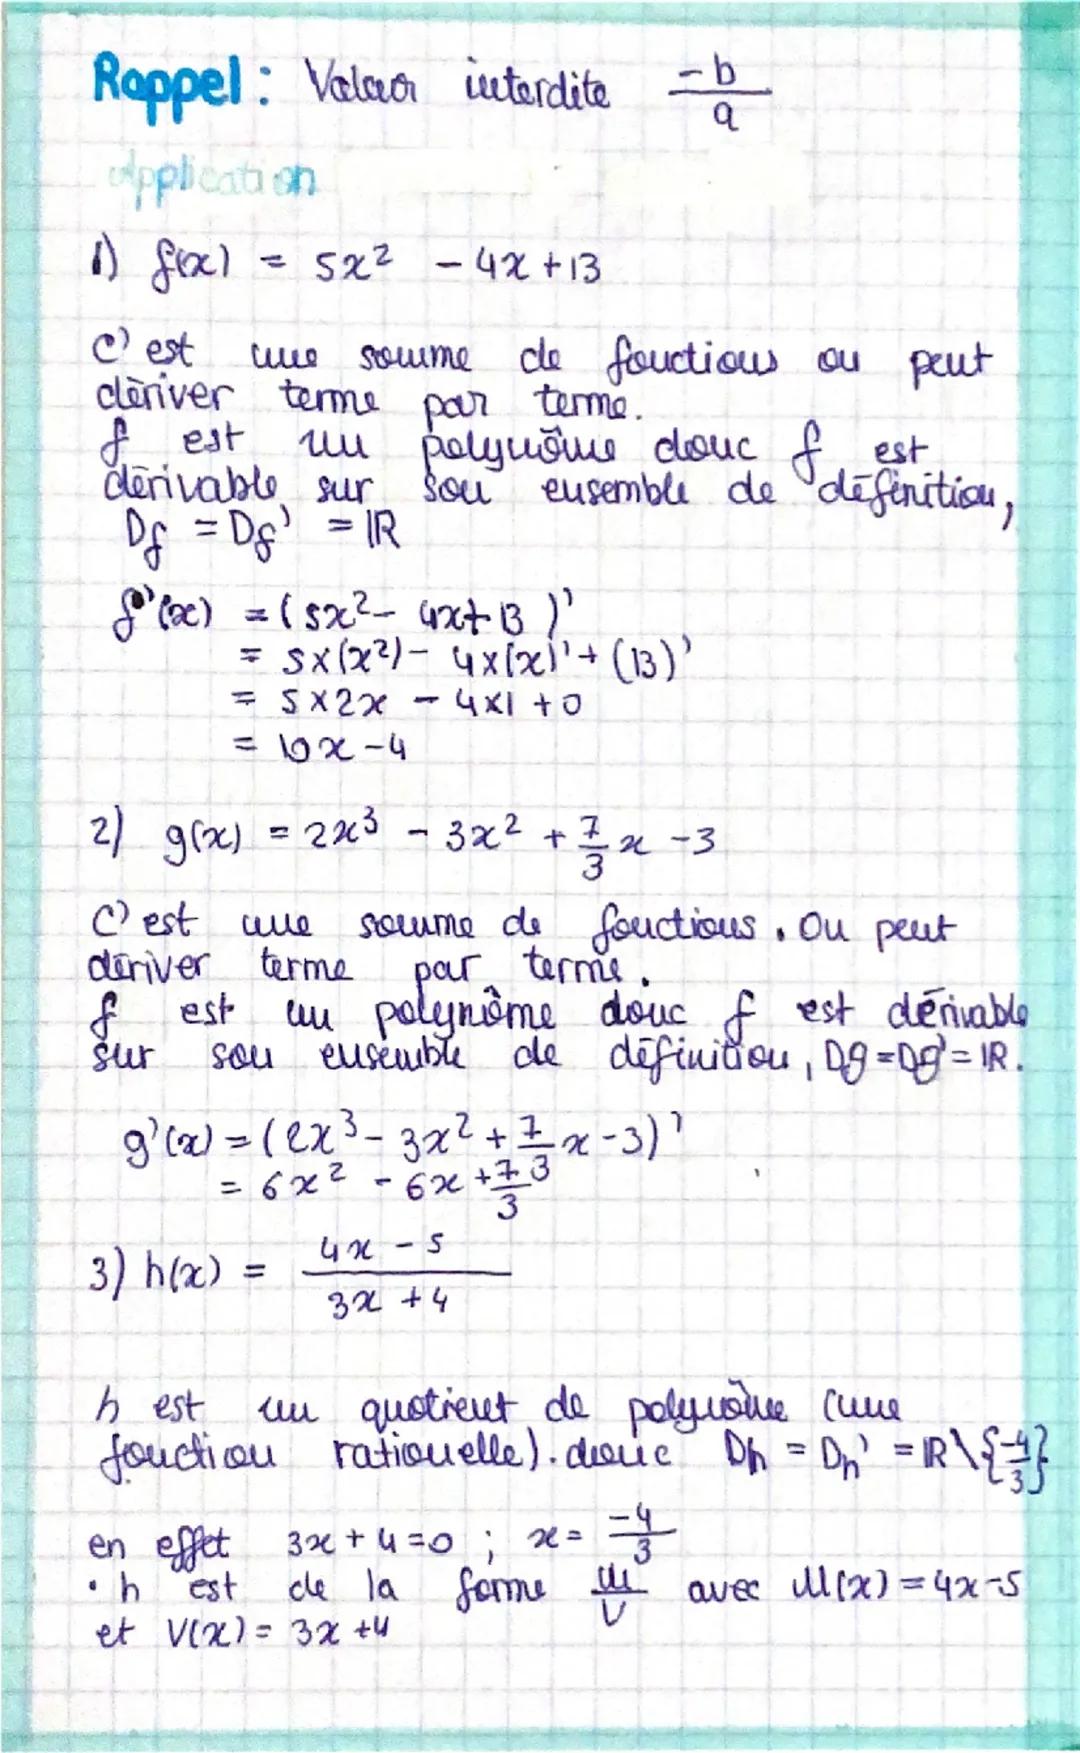 Rappel : Valeur interdite -b/a
Application
1) f(x) = 5x² - 4x + 13
C'est une somme de fonctions on peut
dériver terme par terme.
f est un polynôme donc f est
dérivable sur son ensemble de définition,
Df = Df' = ℝ
f'(x) = (5x² - 4x + 13)'
= 5×(x²) - 4×(x)' + (13)'
= 5×2x - 4×1 + 0
= 10x - 4
2) g(x) = 2x³ - 3x² + 7/3 x - 3
C'est une somme de fonctions. On peut
dériver terme par terme.
f est un polynôme donc f est dérivable
sur son ensemble de définition, Dg = Dg' = ℝ.
g'(x) = (2x³ - 3x² + 7/3 x - 3)'
= 6x² - 6x + 7/3
3) h(x) = (4x - 5)/(3x + 4)
h est un quotient de polynôme (une
fonction rationelle). donc Dh = Dh' = ℝ\{-4/3}
en effet 3x + 4 = 0 ; x = -4/3
• h est de la forme u/v avec U(x) = 4x - 5
et V(x) = 3x + 4